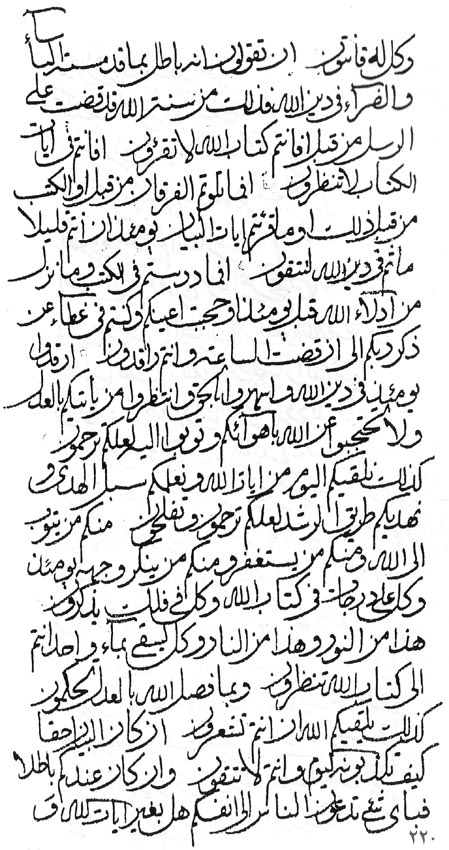 وكل له قانتون ان تقولون انه باطل بما قد مسته البأساء
والضراء في دين الله فذلك من سنة الله قد قضت على
الرسل من قبل افانتم كتاب الله لا تقرؤن افانتم في ايات
الكتاب لا تنظرون انما تلوتم الفرقان من قبل او الكتب
من قبل ذلك او ما قرئتم ايات البيان يومئذ ان انتم قليلا
ما انتم في دين الله لتتقون انما درستم في الكتب وما نزل
من ادلاء الله قبل يومئذ وحجبت اعينكم وكنتم في غطاء عن
ذكر ربكم الى ان قضت الساعة وانتم راقدون ارقدوا
يومئذ في دين الله واسهروا بالحق وانتظروا من يأتيكم بالعدل
ولا تحتجبوا عن الله باهوائكم وتوبوا اليه لعلكم ترحمون
كذلك نلقيكم اليوم من ايات الله ونعلمكم سبل الهدى و
نهديكم طريق الرشد لعلكم ترحمون وتفلحون منكم من يتوب
الى الله ومنكم من يستغفر ومنكم من ينكر وجهه يومئذ
وكل على درجات في كتاب الله وكل في فلك يذكرون
هذا من النور وهذا من النار وكل يسقى بماء واحد انتم
الى كتاب الله تنظرون وبما فصل الله بالعدل تحكمون
كذلك يلقيكم الله ان انتم تشعرون ان كان البيان حقا
كيف تكذبونه اليوم وانتم لا تتقون وان كان عندكم باطلا
فباي شئ تدعون الناس الى انفسكم هل بغير ايات الله و
٢٢٠